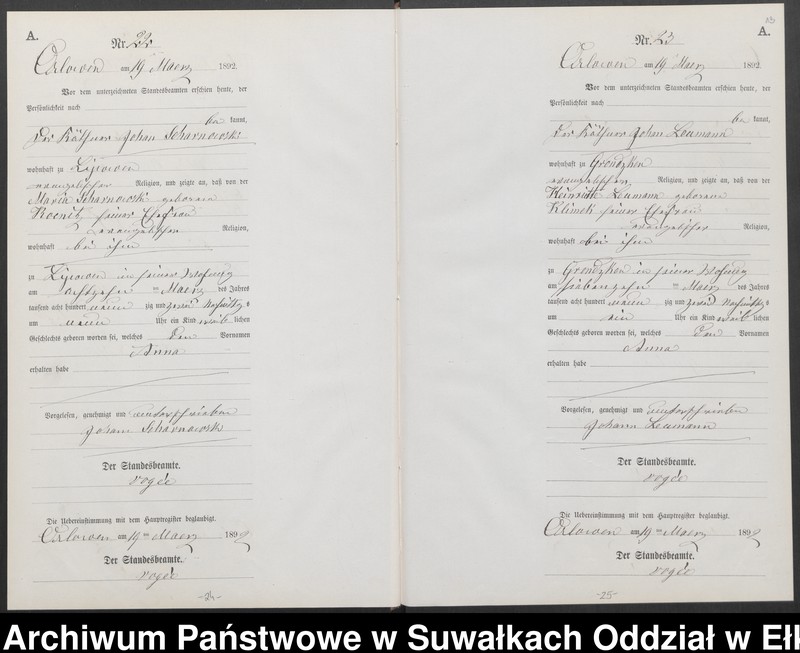 A.
Nr. 22
Orlowen am 19 Maerz 1892.
Vor dem unterzeichneten Standesbeamten erschien heute, der
Persönlichkeit nach
be kannt,
der Käthner Johan Scharnowski
wohnhaft zu Lipowen
evangelischer Religion, und zeigte an, daß von der
Marie Scharnowski geborenen
seiner Ehefrau
evangelischer Religion,
wohnhaft bei ihm
zu Lipowen in seiner Wohnung
am achtzehn ten Maerz des Jahres
tausend acht hundert neun zig und zwei Nachmittags
um neun Uhr ein Kind weib lichen
Geschlechts geboren worden sei, welches den Vornamen
Anna
erhalten habe
Vorgelesen, genehmigt und unterschrieben
Johann Scharnowski
Der Standesbeamte.
Die Uebereinstimmung mit dem Hauptregister beglaubigt.
Orlowen am 19 ten Maerz 1892
Der Standesbeamte.
-24-
13
A.
Nr. 23
Orlowen am 19 Maerz 1892.
Vor dem unterzeichneten Standesbeamten erschien heute, der
Persönlichkeit nach
be kannt,
der Käthner Johan Leumann
wohnhaft zu Grondzken
evangelischer Religion, und zeigte an, daß von der
Heinriette Leumann geborenen
Klimek seiner Ehefrau
evangelischer Religion,
wohnhaft bei ihm
zu Grondzken in seiner Wohnung
am siebenzehn ten Maerz des Jahres
tausend acht hundert neun zig und zwei Nachmittags
um ein Uhr ein Kind weib lichen
Geschlechts geboren worden sei, welches den Vornamen
Anna
erhalten habe
Vorgelesen, genehmigt und unterschrieben
Johann Leumann
Der Standesbeamte.
Die Uebereinstimmung mit dem Hauptregister beglaubigt.
Orlowen am 19 ten Maerz 1892
Der Standesbeamte.
-25-
Archiwum Państwowe w Suwałkach Oddział w Ełk